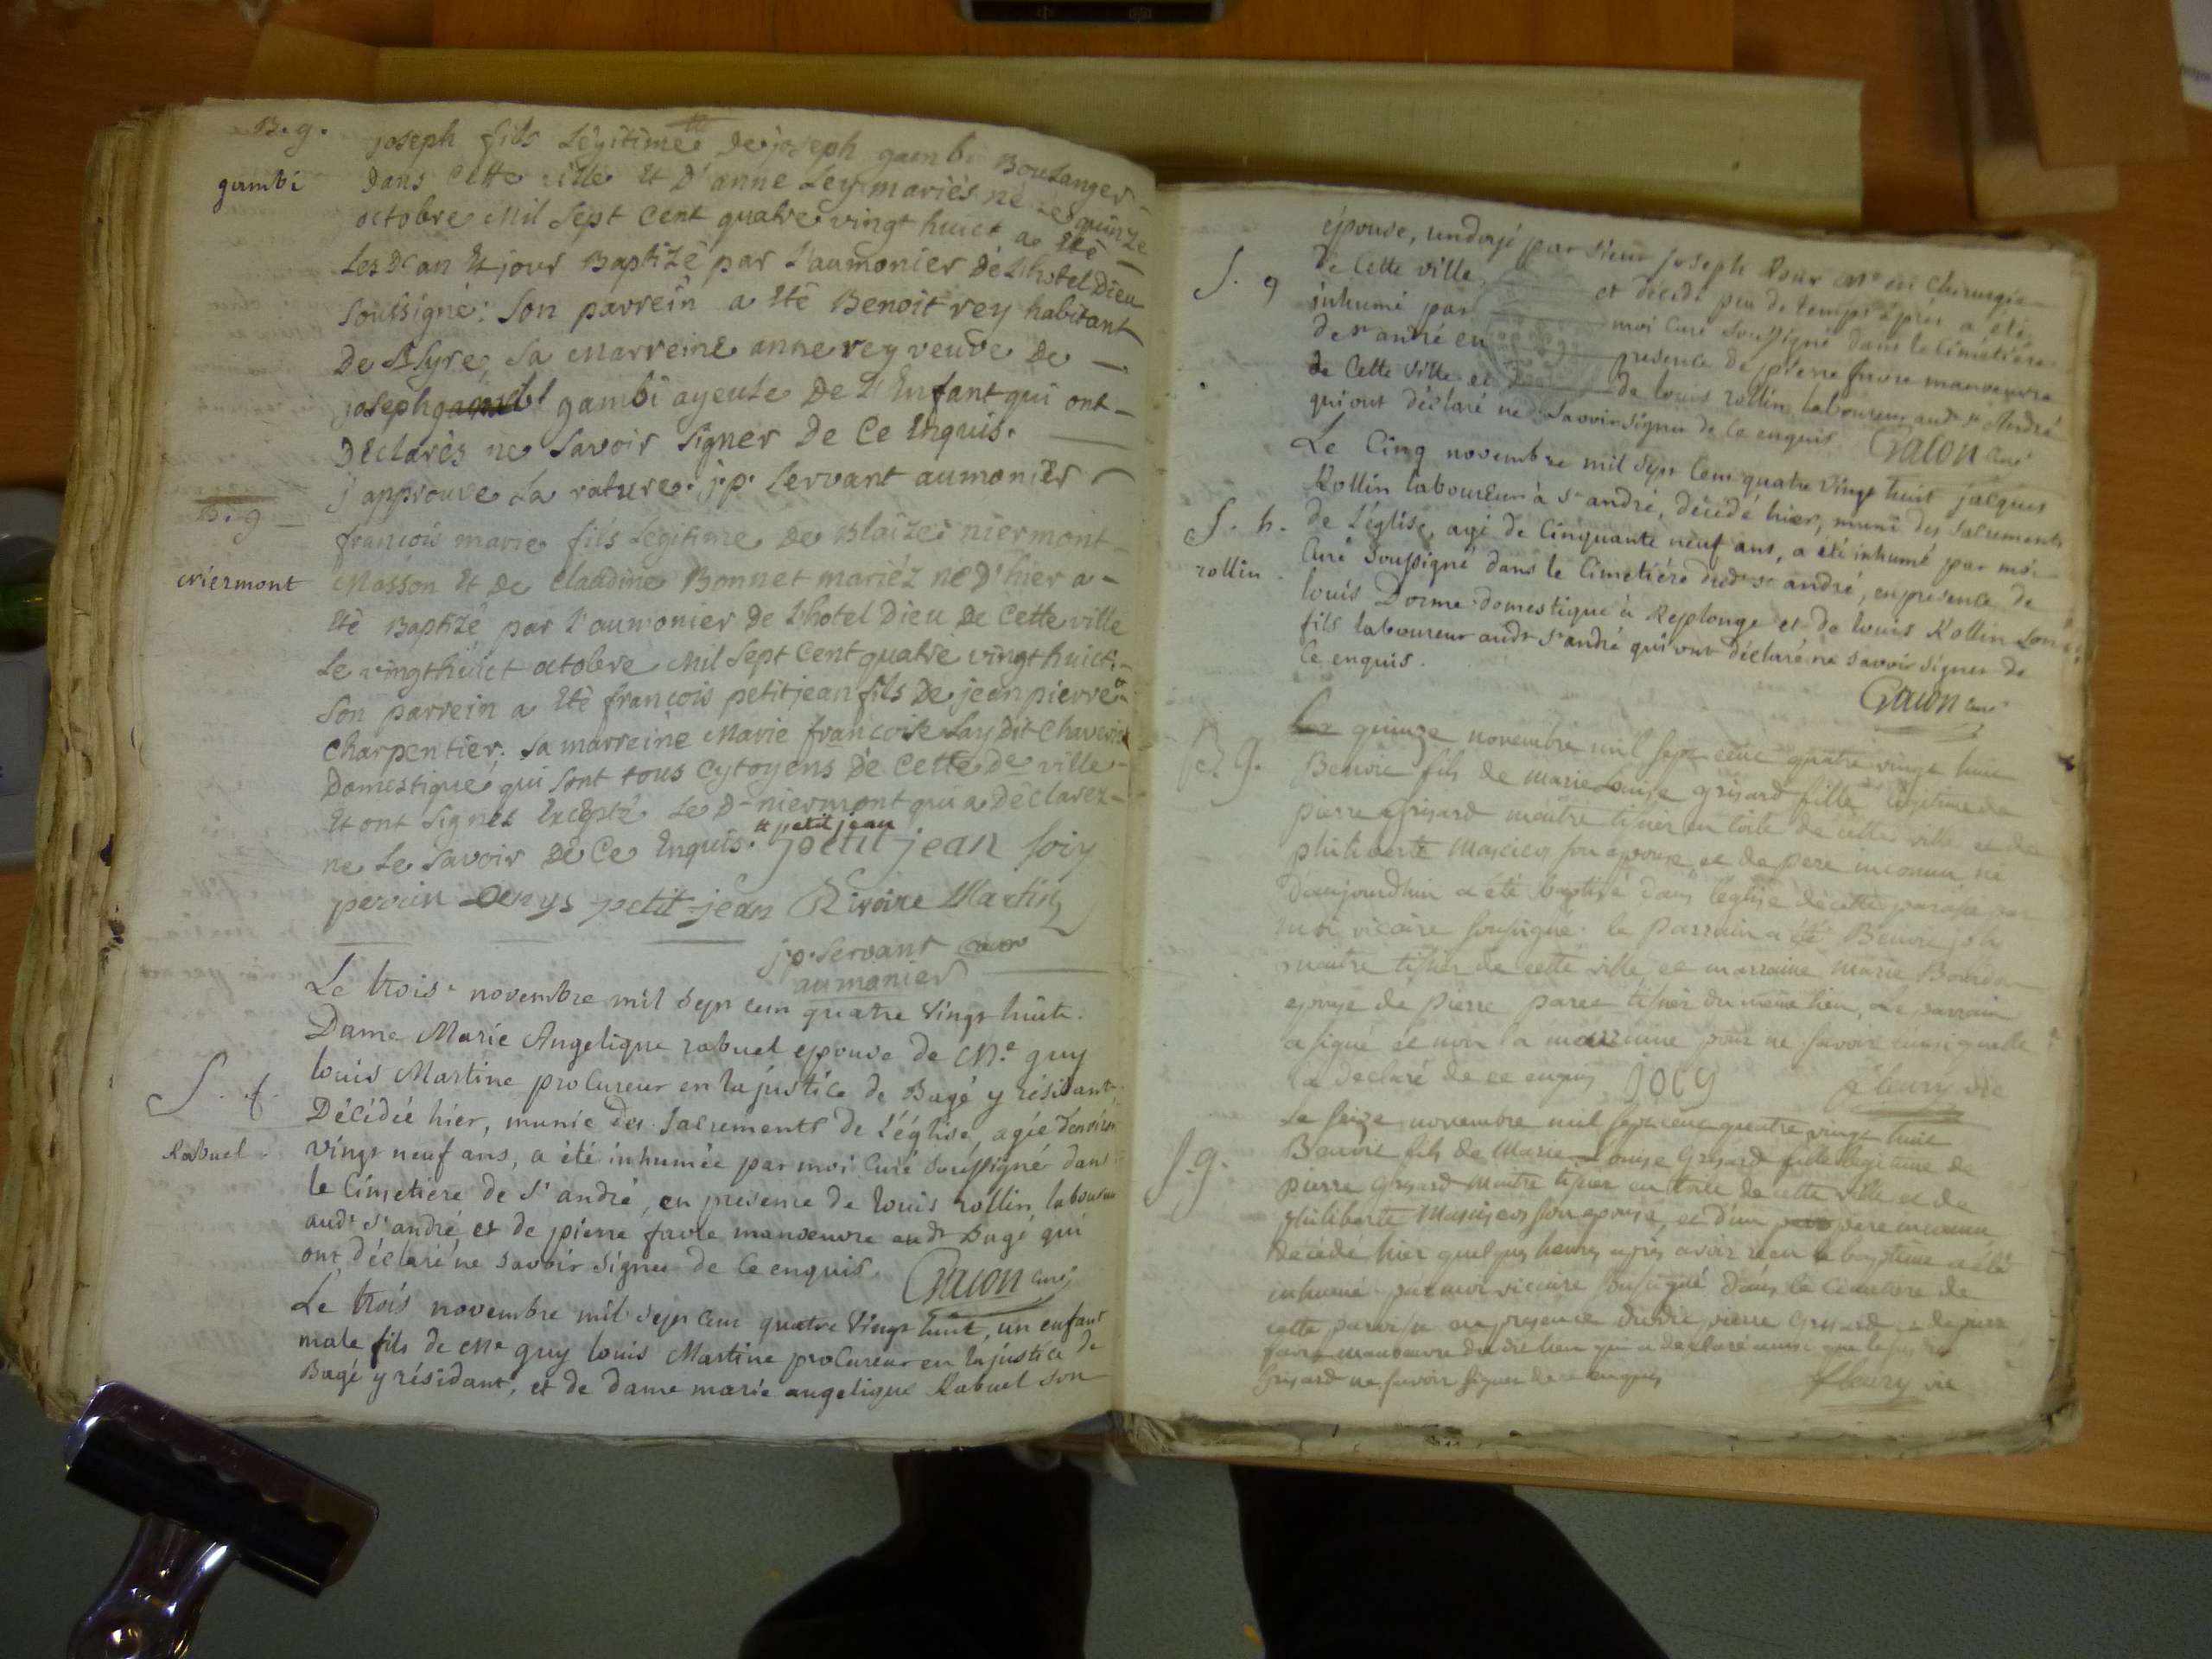 B. g.
gambi
joseph fils Légitime De joseph gambi Boulanger
Dans Cette ville Et D'anne Ley mariés né le quinze
octobre Mil Sept Cent quatre vingt huict a Eté
Les D. an Et jour Baptizé par L'aumonier De L'hotel Dieu
Soussigné: Son parrein a Eté Benoit rey habitant
De St Cyre, Sa Marreine anne rey veuve De
joseph gambi ayeule De L'Enfant qui ont
Déclarés ne Savoir Signer De Ce Enquis.
j'approuve La rature. j. p. Servant aumonier
B. g
Niermont
françois marie fils Légitime De Blaize niermont
Masson Et De Claudine Bonnet mariéz né D'hier a
Eté Baptizé par L'aumonier De L'hotel Dieu De Cette ville
Le vingthuict octobre Mil Sept Cent quatre vingt huict.
Son parrein a Eté françois petitjean fils De jean pierre
Charpentier; sa marreine Marie françoise Lay Dit
Domestique, qui sont tous Cytoyens De Cette De ville
Et ont Signés Excepté Le D. niermont qui a Déclarez
ne Le Savoir De Ce Enquis. petit jean
petit jean
perrin Denys petit-jean Rivoire Martin
j. p. Servant
aumonier
S. f.
Rabuel
Le trois novembre mil sept cent quatre vingt huit.
Dame Marie Angelique rabuel epouse de Me guy
louis Martine procureur en la justice de Bagé y résidant,
Décédée hier, munie des Sacrements de l'église, agée d'environ
vingt neuf ans, a été inhumée par moi Curé soussigné dans
le Cimetiere de St andré, en presence de louis rollin laboureur
audt St andré et de pierre favre manœuvre audt Bagé qui
ont déclaré ne savoir signer de ce enquis. Gacon Curé
Le trois novembre mil sept cent quatre vingt huit, un enfant
male fils de Me guy louis Martine procureur en la justice de
Bagé y résidant, et de dame marie angelique Rabuel son
S. g
épouse, undoyé par sieur joseph Me en Chirurgie
de Cette ville, et décédé peu de temps après a été
inhumé par moi Curé soussigné dans le Cimetière
de St andré en presence de pierre favre manœuvre
de Cette Ville et de louis rollin laboureur audt St André
qui ont déclaré ne Savoir Signer de Ce enquis Gacon Curé
S. h.
rollin
Le Cinq novembre mil sept Cent quatre Vingt huit jacques
Rollin laboureur à St andré, décédé hier, muni des sacrements
de l'église, agé de Cinquante neuf ans, a été inhumé par moi
Curé Soussigné dans le Cimetiére dudt St andré, en présence de
louis Dorme domestique à Replonge et de louis Rollin son
fils laboureur audt St andré qui ont déclaré ne savoir signer de
Ce enquis.
Gacon Curé
B. g.
Le quinze novembre mil sept cent quatre vingt huit
Benoit fils de marie Louise grisard fille légitime de
pierre grisard maître tissier en toile de cette ville et de
philiberte son épouse, et de pere inconnu né
d'aujourdhui a été baptisé dans l'église de cette paroisse par
moi vicaire soussigné. le parrain a été Benoit joly
maître tissier de cette ville et marraine marie
epouse de pierre tissier du même lieu, le parrain
a signé et non la marraine pour ne savoir ainsi quelle
la declaré de ce enquis joly fleury vic
S. g.
Le seize novembre mil sept cent quatre vingt huit
Benoit fils de Marie Louise Grisard fille légitime de
pierre Grisard maitre tissier en toile de cette ville et de
philiberte son epouse, et d'un pere inconnu,
décédé hier quelques heures après avoir reçu le baptême a été
inhumé par moi vicaire soussigné dans le Cimetiere de
cette paroisse en presence dudit pierre Grisard et de pierre
favre manœuvre dudit lieu qui a declaré ainsi que ledit
Grisard ne savoir signer de ce enquis fleury vic